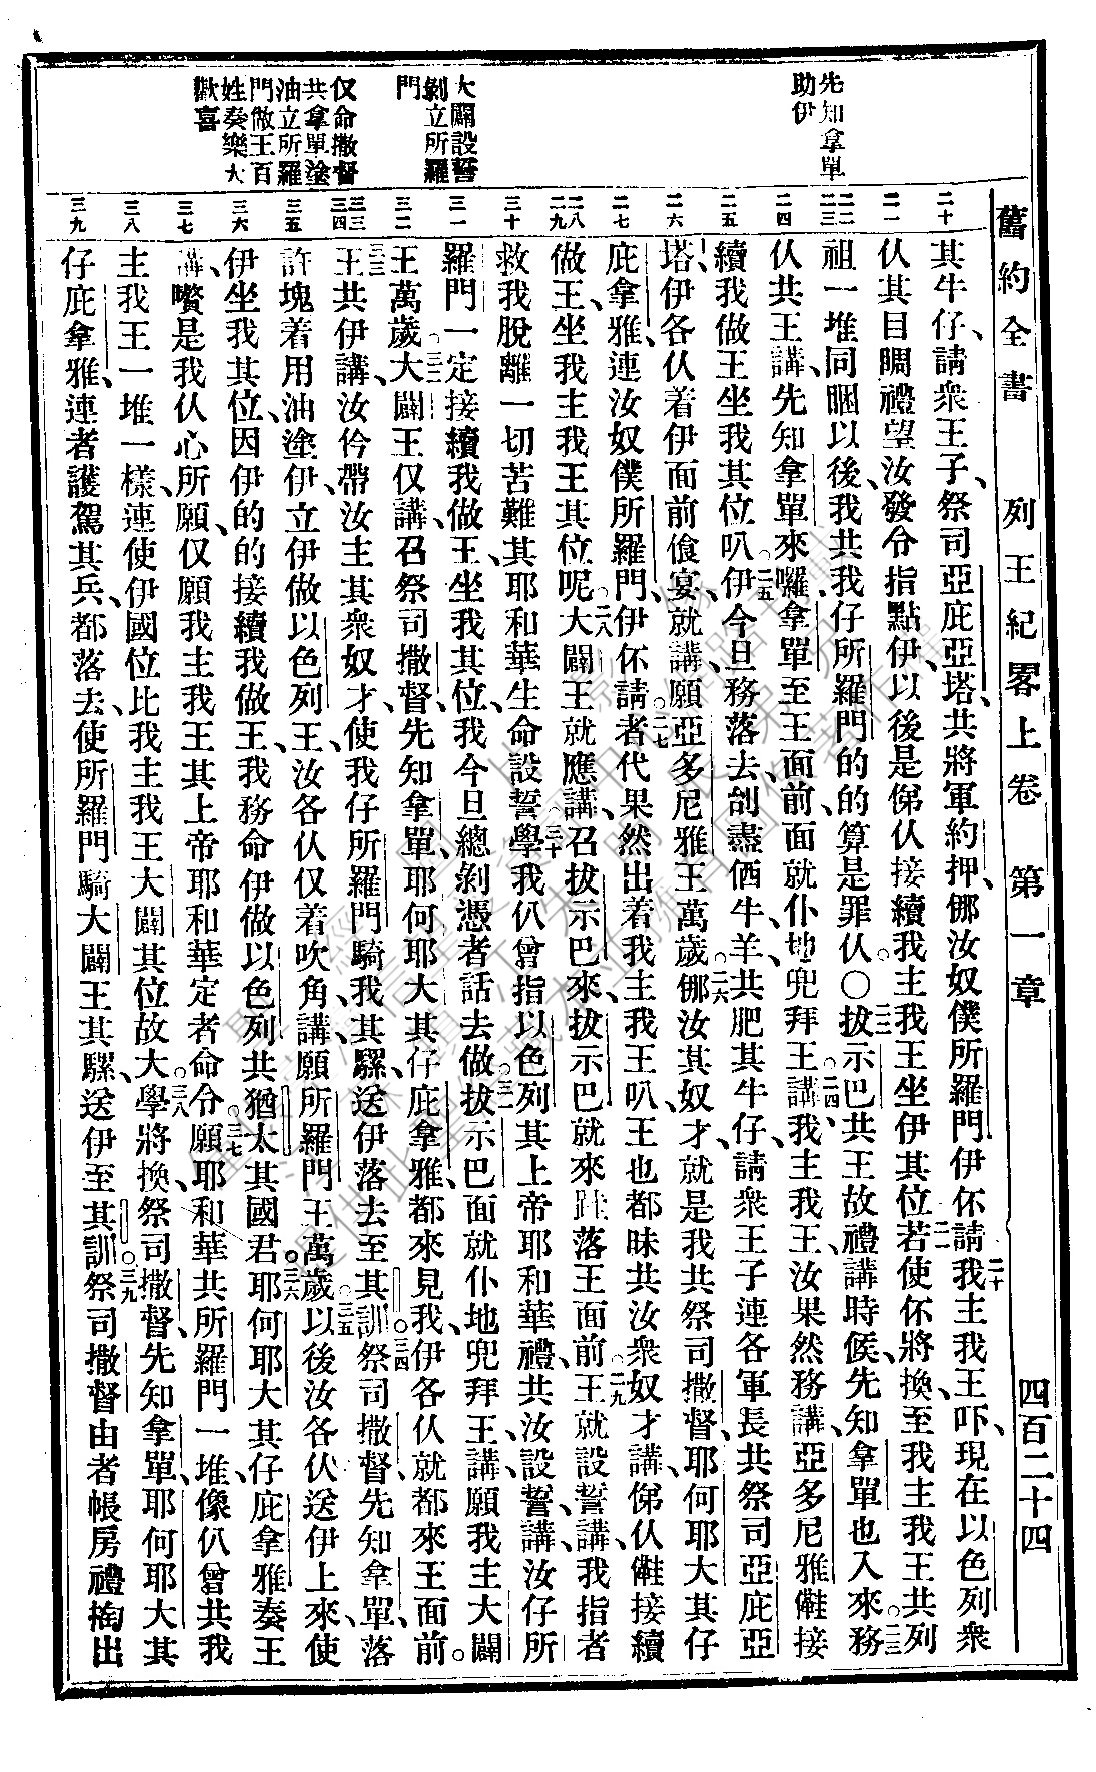 舊約全書 列王紀畧上卷 第一章 四百二十四
先知拿單
助伊
大闢設誓
剝立所羅
門
仅命撒督
共拿單塗
油立所羅
門做王百
姓奏樂大
歡喜
二十 二一 二二 二三 二四 二五 二六 二七 二八 二九 三十 三一 三二 三三 三四 三五 三六 三七 三八 三九
其牛仔、請衆王子、祭司亞庇亞塔、共將軍約押、㑚汝奴僕所羅門伊伓請、二十我主我王、吓、現在以色列衆
仈其目睭禮望汝、發令指點伊以後是俤仈接續我主我王坐伊其位。二一若使伓將換、至我主我王共列
祖一堆同睏以後、我共我仔所羅門的的算是罪仈。○二二拔示巴共王故禮講時候、先知拿單也入來。二三務
仈共王講、先知拿單來囉、拿單至王面前、面就仆地兜拜王。二四講、我主我王、汝果然務講、亞多尼雅𣍐接
續我做王坐我其位叭。二五伊今旦務落去、刣盡価牛羊、共肥其牛仔、請衆王子連各軍長共祭司亞庇亞
塔、伊各仈着伊面前飡宴、就講、願亞多尼雅王萬歲。二六㑚汝其奴才、就是我共祭司撒督、耶何耶大其仔
庇拿雅、連汝奴僕所羅門、伊伓請者。二七代果然出着我主我王叭、王也都昧共汝衆奴才講、俤仈𣍐接續
做王、坐我主我王其位呢。二八大闢王就應講、召拔示巴來、拔示巴就來跬落王面前。二九王就設誓講、我指者
救我脫離一切苦難、其耶和華生命設誓。三十學我仈曾指以色列其上帝耶和華禮、共汝設誓、講、汝仔所
羅門一定接續我做王、坐我其位、我今旦總剝憑者話去做。三一拔示巴面就仆地兜拜王、講、願我主大闢
王萬歲。三二大闢王仅講、召祭司撒督、先知拿單、耶何耶大其仔庇拿雅、都來見我、伊各仈就都來王面前。
三三王共伊講、汝仱帶汝主其衆奴才、使我仔所羅門騎我其騾、送伊落去至其訓。三四祭司撒督先知拿單落
許塊着用油塗伊、立伊做以色列王、汝各仈仅着吹角、講、願所羅門王萬歲。三五以後汝各仈送伊上來、使
伊坐我其位、因伊的的接續我做王、我務命伊做以色列共猶太其國君。三六耶何耶大其仔庇拿雅奏王
講、嘴是我仈心所願、仅願我主我王其上帝耶和華定者命令。三七願耶和華共所羅門一堆、像仈曾共我
主我王一堆一樣、連使伊國位比我主我王大闢其位故大。三八學將換、祭司撒督、先知拿單、耶何耶大其
仔庇拿雅、連者護駕其兵、都落去、使所羅門騎大闢王其騾、送伊至其訓。三九祭司撒督由者帳房禮掏出